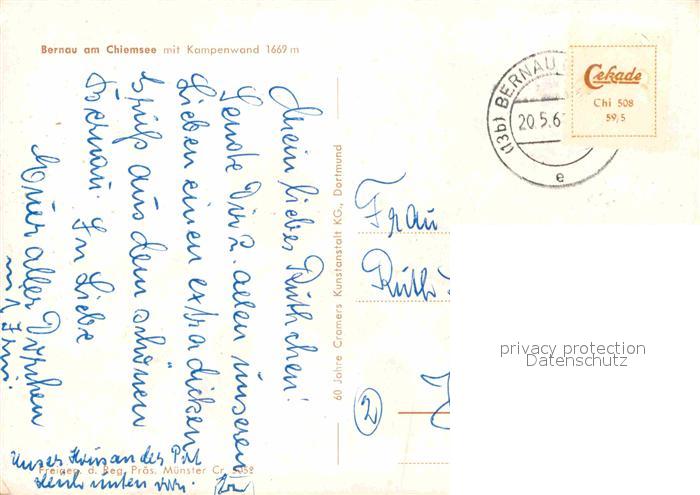 Bernau am Chiemsee mit Kampenwand 1669 m
Mein liebes Ruthchen!
Sende Dir u. allen unseren
Lieben einen extra dicken
Gruß aus dem schönen
Bernau. In Liebe
Euer aller Dorchen
unser Haus an der
links unten
Freigeg. d. Reg. Präs. Münster Cr. 5058
60 Jahre Cramers Kunstanstalt KG., Dortmund
(13b) BERNAU
20.5.6
e
Cekade
Chi 508
59/5
Frau
Ruth
2
privacy protection
Datenschutz